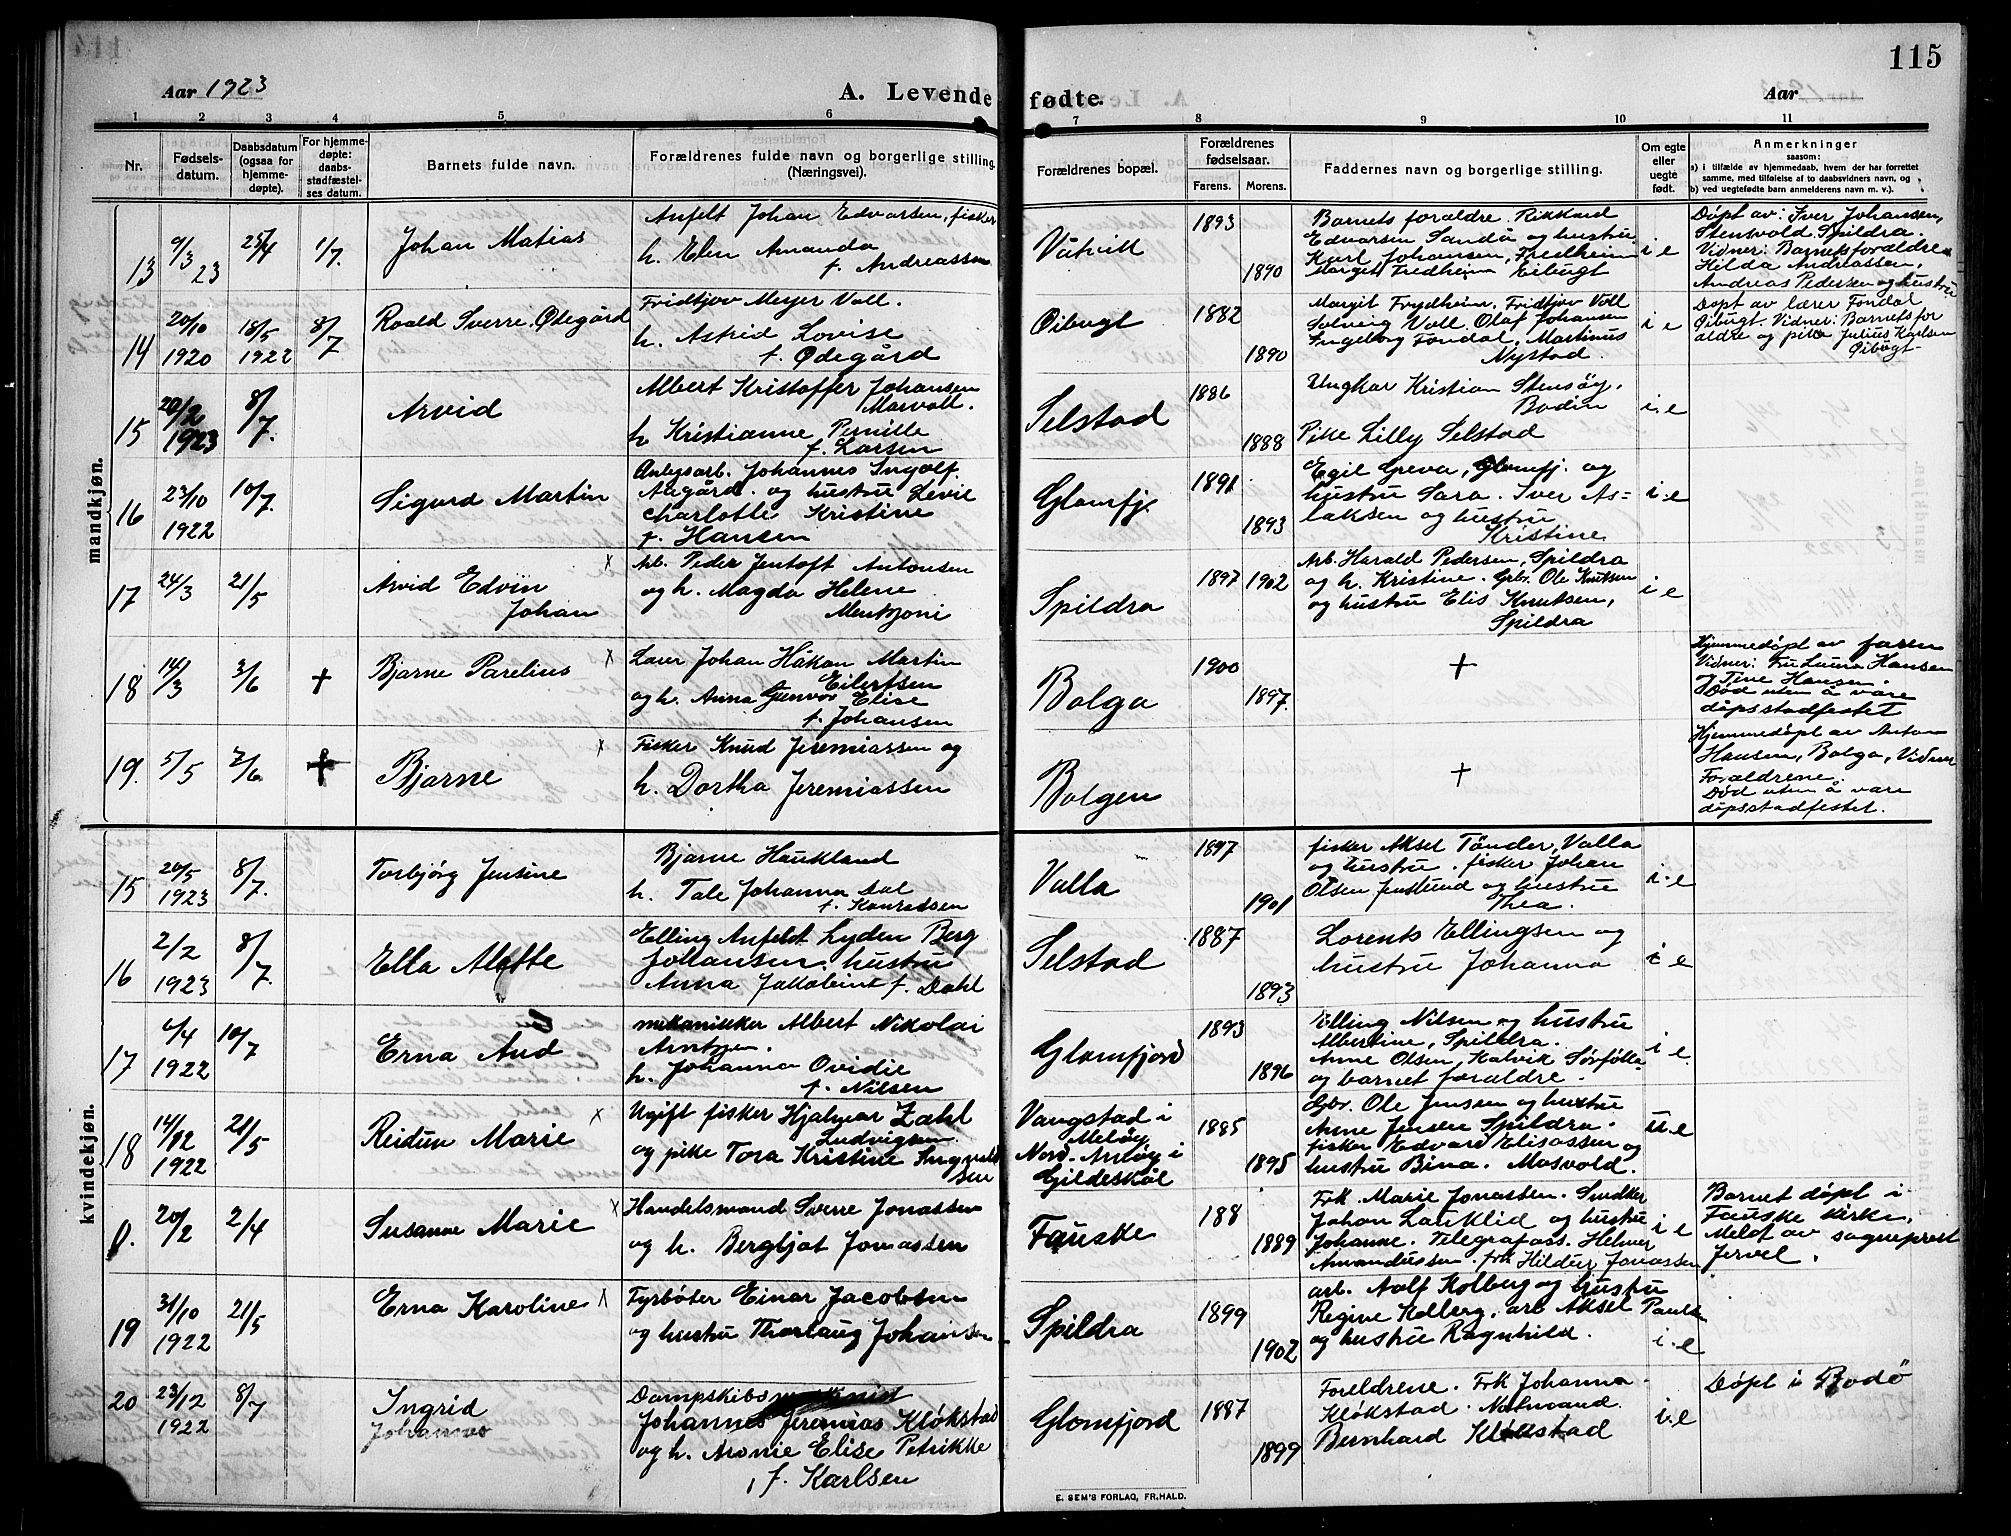 115
Aar 1923
A. Levende fødte.
Aar
1 2 3 4 5 6 7 8 9 10 11
Nr.
Fødsels-
datum.
Daabsdatum
(ogsaa for
hjemme-
døpte).
For hjemme-
døpte:
daabs-
stadfæstel-
ses datum.
Barnets fulde navn.
Forældrenes fulde navn og borgerlige stilling
(Næringsvei).
Forældrenes bopæl.
Forældrenes
fødselsaar.
Farens. Morens.
Faddernes navn og borgerlige stilling.
Om egte
eller
uegte
født.
Anmerkninger
saasom:
a) i tilfælde av hjemmedaab, hvem der har forrettet
samme, med tilføielse af to daabsvidners navn, og
b) ved uegtefødte barn anmelderens navn m. v.).
mandkjøn.
13
9/3
23
25/4
1/7.
Johan Matias
Anfelt Johan Edvarsen, fisker
h. Elen Amanda
f. Andreassen
Våtvik
1893
1890
Barnets forældre. Rikkard
Edvarsen Sandå og hustru
Karl Johansen, Fredheim
Marget Fredheim Eibugt
i e
Døpt av: Iver Johansen,
Stensvold. Spildra.
Vidner: Barnetsforældre
Hilda Andreassen,
Andreas Pedersen og hustru
14
20/10
1920
18/5
1922
8/7
Roald Sverre Ødegård
Fridtjov Meyer Voll.
h. Astrid Lovise
f. Ødegård
Øibugt
1882
1890
Margit Frydheim, Fridtjov Voll
Solveig Voll. Olaf Johansen
Ingeborg Fondal, Martinus
Nystad.
i e
Døpt av lærer Fondal
Øibugt. Vidner: Barnets for
ældre og pike Julius Karlsen
Øibugt
15
20/2
1923
8/7.
Arvid
Albert Kristoffer Johansen
Marvoll.
h Kristianne Pernille
f. Larsen
Selstad
1886
1888
Ungkar Kristian Stensøy,
Bodin
Pike Lilly Selstad
i. e
16
23/10
1922
10/7.
Sigurd Martin
Anlegsarb. Johannes Ingolf
Aagård og hustru Levie
Charlotte Kristine
f. Hansen
Glomfj.
1891
1893
Egil Greva, Glomfj. og
hustru Sara. Iver As-
laksen og hustru
Kristine
i e
17
24/3
21/5
Arvid Edvin
Johan
x
Arb. Peder Jentoft Antonsen
og h. Magda Helene
Mentzoni
Spildra
1897 1902
Arb. Harald Pedersen, Spildra
og h. Kristine. Grbr. Ole Knutsen
og hustru Elis Knutsen,
Spildra
i e
18
14/3
3/6
+
Bjarne Parelius
x
Lærer Johan Håkon Martin
Eilertsen
og h. Anna Gunvor Elise
f. Johansen
Bolga
1900
1897.
+
Hjemmedøpt av faren
Vidner: Fru Laura Hansen
og Tine Hansen.
Død uten å være
dåpsstadfestet
19.
5/5
2/6
+
Bjarne
x
Fisker Knud Jeremiassen og
h. Dortha Jeremiassen
Bolgen
+
Hjemmedøpt av Anton
Hansen, Bolga, Vidner
Forældrene.
Død uten å være
dåpsstadfestet.
kvindekjøn.
15
20/5
1923
8/7.
Torbjørg Jensine
Bjarne Haukland
h. Tale Johanna
f. Konradsen
Valla
1897
1901
fisker Aksel Tønder, Valla
og hustru. fisker Johan
Olsen Jenslund og hustru
Thea.
i. e
16
2/2
1923
8/7.
Ella Alette
Elling Anfeldt Lyden Berg
Johansen, hustru
Anna Jakobine f. Dahl
Selstad
1887
1893
Lorents Ellingsen og
hustru Johanna
i e
17
4/4
1922
10/7
Erna Aud
mekaniseker Albert Nikolai
Arntzen.
h. Johanna Ovidie
f. Nilsen
Glomfjord
1893
1896
Elling Nilsen og hustru
Albertine, Spildra.
Anne Olsen, Kalvik Sørfolla
og barnet forældre.
i e
18
14/12
1922
21/5
Reidun Marie
x
Ugift fisker Hjalmar Zahl
Ludvigsen
og pike Tora Kristine Ingvald
sen
Vangstad i
Meløy
Nord-Arnøy i
Gildeskål
1885
1895
Gbr. Ole Jensen og hustru
Anne Jensen Spildra.
fisker Edvard Elisassen og
hustru Bina. Mosvold.
u. e
20/2
2/4
Susanne Marie
x
Handelsmand Sverre Jonassen
og h. Bergljot Jonassen
Fauske
188
1889
Frk. Marie Jonassen. Smdkr
Johan Lauklid og hustru
Johanne. Telegrafass. Helmer
Amandussen. frk Hildur Jonassen
i e
Barnet døpt i
Fauske kirke,
Meld. av sogneprest
Jervel.
19
31/10
1922
21/5
Erna Karoline
x
Fyrbøter Einar Jacobsen
og hustru Thorlaug Johansen
Spildra
1899
1902
arb. Aalf Kolberg og hustru
Regine Kolberg, arb Aksel Pauls
og hustru Ragnhild.
i. e
20
23/12
1922
8/7
Ingrid
Johanne
Dampskibs
Johannes Jeremias Kløkstad
og h. Aronie Elise Petrikke
f. Karlsen
Glomfjord
1887
1899
Foreldrene. Frk Johanna
Kløkstad. Nolmand.
Bernhard Kløkstad
i. e
Døpt i Bodø
E. SEM'S FORLAG, FR.HALD.